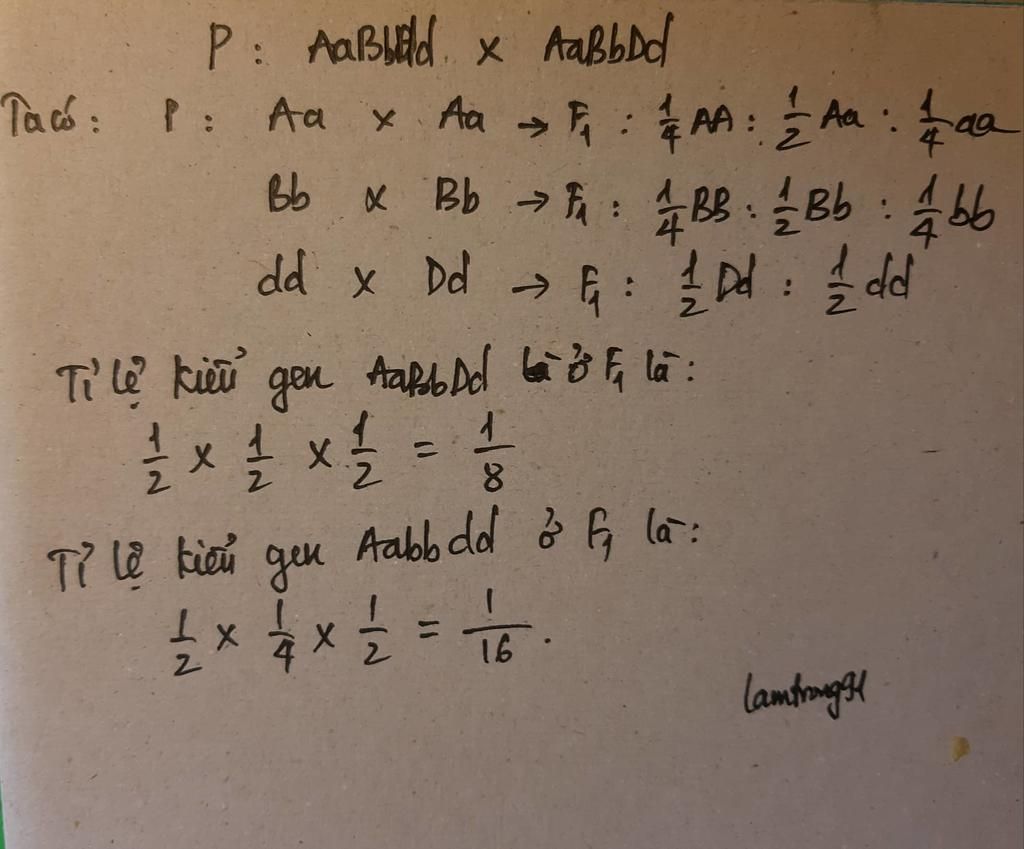 P : AaBbdd x AaBbDd
Ta có : P : Aa x Aa → F₁ : 1/4 AA : 1/2 Aa : 1/4 aa
Bb x Bb → F₁ : 1/4 BB : 1/2 Bb : 1/4 bb
dd x Dd → F₁ : 1/2 Dd : 1/2 dd
Tỉ lệ kiểu gen AaBbDd ở F₁ là :
1/2 x 1/2 x 1/2 = 1/8
Tỉ lệ kiểu gen Aabbdd ở F₁ là :
1/2 x 1/4 x 1/2 = 1/16 .